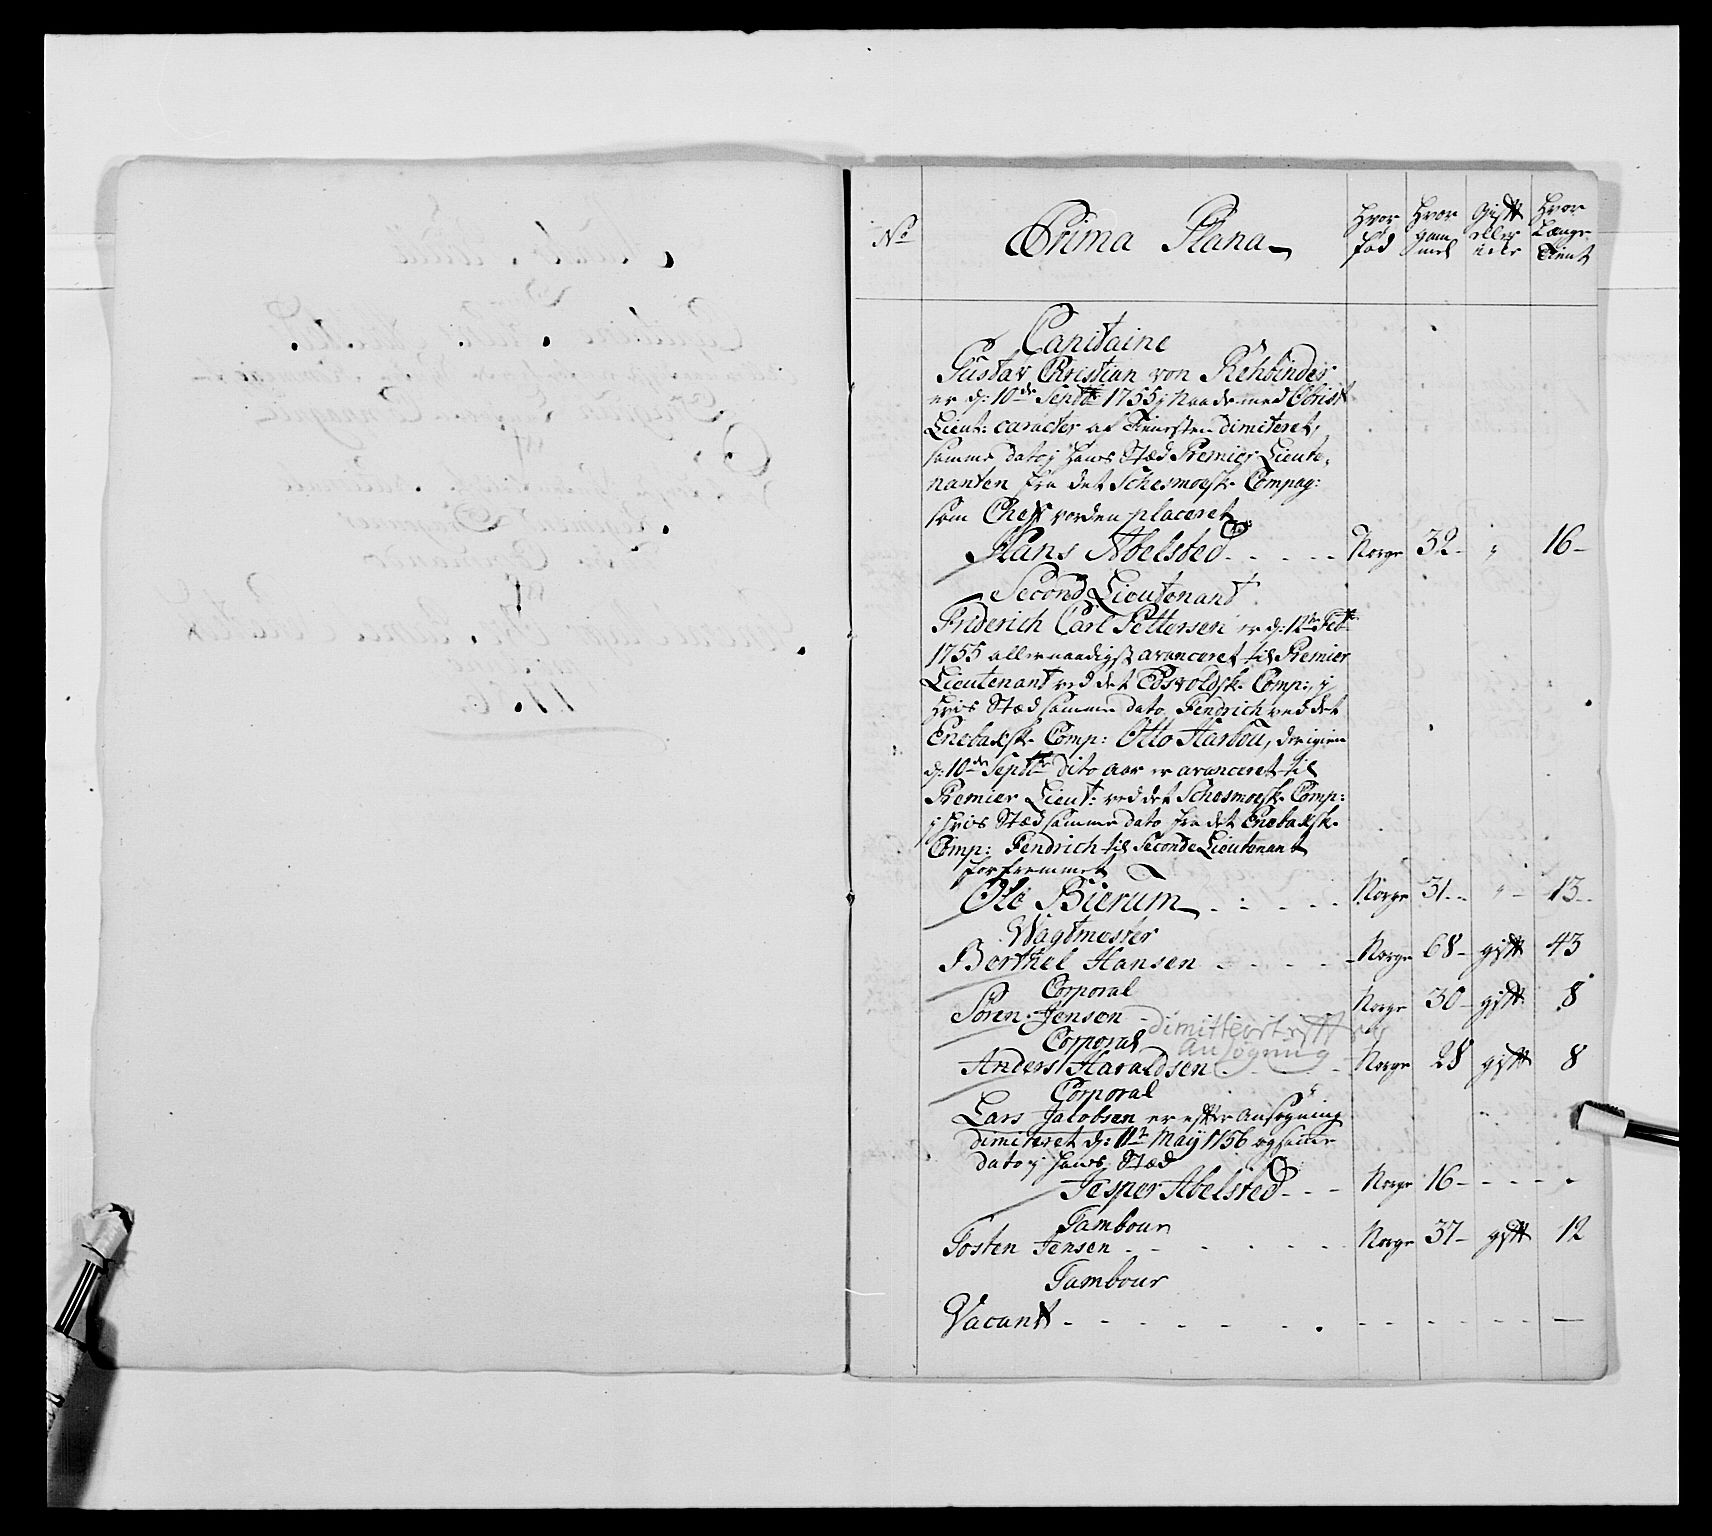 No
Prima Plana
Hvor
fød
Hvor
gam
mel
Gift
eller
eier
Hvor
Længe
Tient
Capitaine
Gustav Christian von Rehbinder
er d: 10de Septbr 1755 i Naade med Obrist
Lieut: caracter af Tienesten dimiteret,
samme dato i hans Stæd Premier Lieute-
nanten fra det Schesmoesk. Compag:
som Cheff vorden placeret
Hans Abelsted Norge 32 " 16
Second Lieutenant
Friderich Carl Pettersen er d: 12te Febr
1755 allernaadigst avanceret til Premier
Lieutenant ved det Edsvoldsk. Comp:, i
hvis Stæd samme dato Fendrich ved det
Enebaksk. Comp: Otto Harbou, der igien
d: 10de Septbr dito aar er avanceret til
Premier Lieut: ved det Schesmoesk. Comp:
i hvis Stæd samme dato fra det Enebaksk.
Comp: Fendrich til Seconde Lieutenant
forfremmet
Ole Bierum Norge 31 " 13
Wagtmester
Berthel Hansen Norge 68 gift 43
Corporal
Sören Jensen Norge 30 gift 8
dimitterit eft
ansøgning
Corporal
Anders Haraldsen Norge 28 gift 8
Corporal
Lars Jacobsen er efter Ansøgning
dimiteret d: 11te May 1756 og samme
dato i hans Stæd
Jesper Abelsted Norge 16 - -
Tambour
Tosten Jensen Norge 37 gift 12
Tambour
Vacant